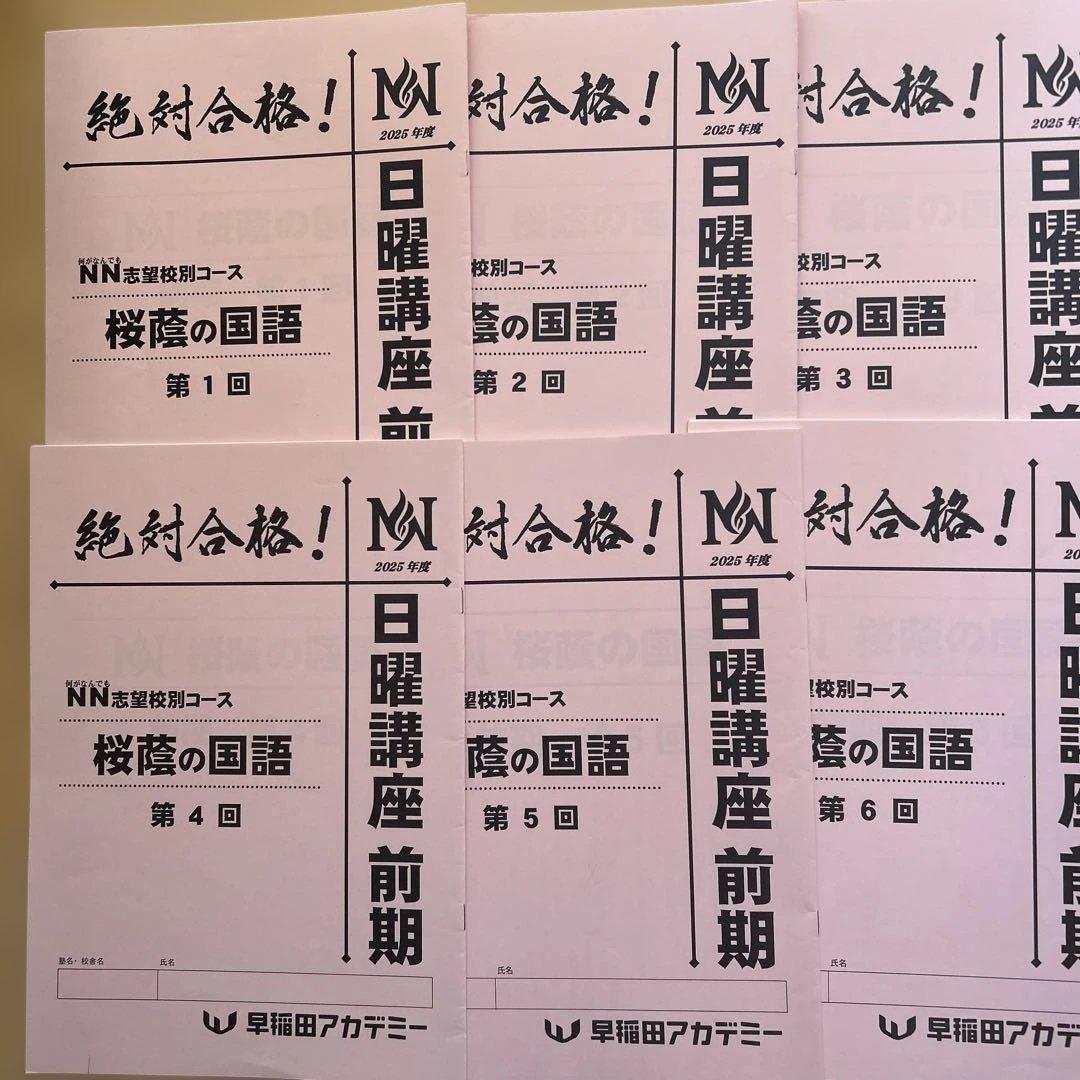 絶対合格！
NN
2025年度
日曜講座 前
何がなんでも
NN志望校別コース
桜蔭の国語
第1回
対合格！
NN
2025年度
日曜講座
校別コース
蔭の国語
第2回
対合格！
2025年
日曜講座
校別コース
蔭の国語
第3回
絶対合格！
NN
2025年度
日曜講座 前期
何がなんでも
NN志望校別コース
桜蔭の国語
第4回
塾名・校舎名
氏名
早稲田アカデミー
対合格！
NN
2025年度
日曜講座 前期
校別コース
蔭の国語
第5回
氏名
早稲田アカデミー
対合格！
日曜講座 前期
校別コース
蔭の国語
第6回
氏名
早稲田アカデ